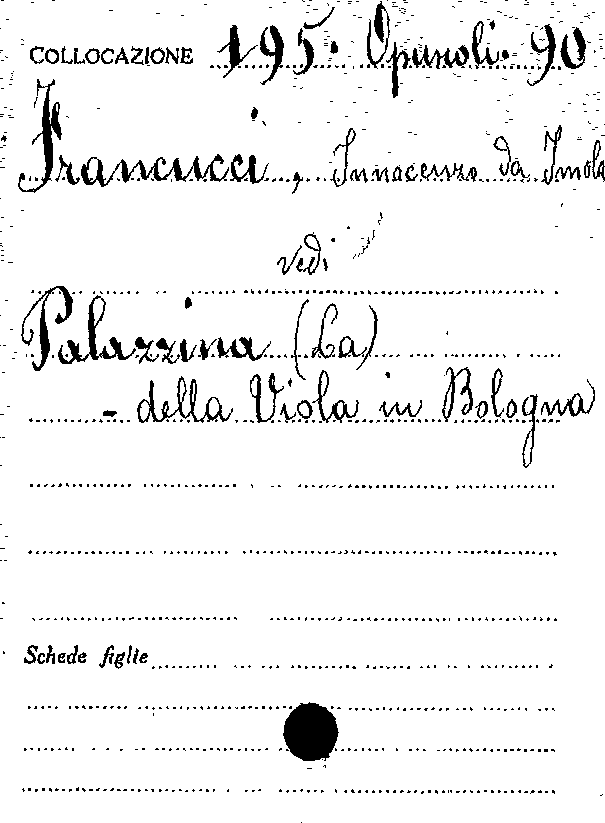 COLLOCAZIONE 195. Opuscoli. 90
Francucci, Innocenzo da Imola
vedi
Palazzina (La)
- della Viola in Bologna
Schede figlie